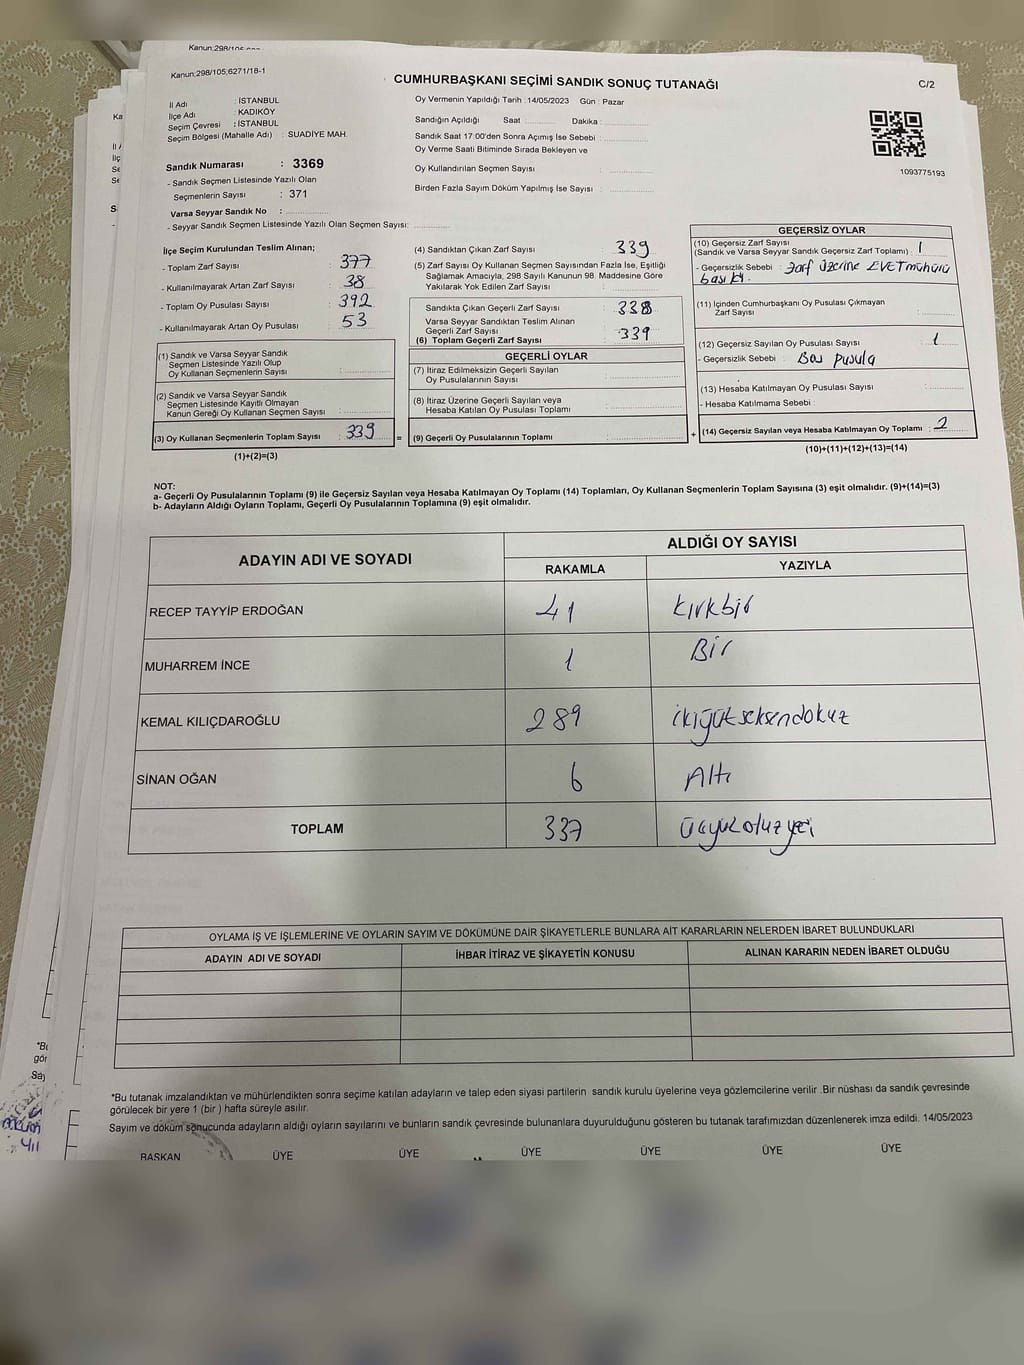 Kanun:298/105
Kanun:298/105,6271/18-1
CUMHURBAŞKANI SEÇİMİ SANDIK SONUÇ TUTANAĞI
C/2
İl Adı : İSTANBUL
İlçe Adı : KADIKÖY
Seçim Çevresi : İSTANBUL
Seçim Bölgesi (Mahalle Adı) : SUADİYE MAH.
Sandık Numarası : 3369
- Sandık Seçmen Listesinde Yazılı Olan
Seçmenlerin Sayısı : 371
Varsa Seyyar Sandık No :
- Seyyar Sandık Seçmen Listesinde Yazılı Olan Seçmen Sayısı:
Oy Vermenin Yapıldığı Tarih :14/05/2023 Gün : Pazar
Sandığın Açıldığı Saat Dakika :
Sandık Saat 17:00'den Sonra Açımış İse Sebebi :
Oy Verme Saati Bitiminde Sırada Bekleyen ve
Oy Kullandırılan Seçmen Sayısı :
Birden Fazla Sayım Döküm Yapılmış İse Sayısı :
1093775193
İlçe Seçim Kurulundan Teslim Alınan;
- Toplam Zarf Sayısı : 377
- Kullanılmayarak Artan Zarf Sayısı : 38
- Toplam Oy Pusulası Sayısı : 392
- Kullanılmayarak Artan Oy Pusulası : 53
(1) Sandık ve Varsa Seyyar Sandık
Seçmen Listesinde Yazılı Olup
Oy Kullanan Seçmenlerin Sayısı :
(2) Sandık ve Varsa Seyyar Sandık
Seçmen Listesinde Kayıtlı Olmayan
Kanun Gereği Oy Kullanan Seçmen Sayısı :
(3) Oy Kullanan Seçmenlerin Toplam Sayısı : 339 =
(1)+(2)=(3)
(4) Sandıktan Çıkan Zarf Sayısı : 339
(5) Zarf Sayısı Oy Kullanan Seçmen Sayısından Fazla İse, Eşitliği
Sağlamak Amacıyla, 298 Sayılı Kanunun 98. Maddesine Göre
Yakılarak Yok Edilen Zarf Sayısı :
Sandıkta Çıkan Geçerli Zarf Sayısı : 338
Varsa Seyyar Sandıktan Teslim Alınan
Geçerli Zarf Sayısı :
(6) Toplam Geçerli Zarf Sayısı : 339
GEÇERLİ OYLAR
(7) İtiraz Edilmeksizin Geçerli Sayılan
Oy Pusulalarının Sayısı :
(8) İtiraz Üzerine Geçerli Sayılan veya
Hesaba Katılan Oy Pusulası Toplamı :
(9) Geçerli Oy Pusulalarının Toplamı : +
GEÇERSİZ OYLAR
(10) Geçersiz Zarf Sayısı
(Sandık ve Varsa Seyyar Sandık Geçersiz Zarf Toplamı) : 1
- Geçersizlik Sebebi : Zarf üzerine EVET mührü
(11) İçinden Cumhurbaşkanı Oy Pusulası Çıkmayan
Zarf Sayısı :
(12) Geçersiz Sayılan Oy Pusulası Sayısı : 1
- Geçersizlik Sebebi : Boş pusula
(13) Hesaba Katılmayan Oy Pusulası Sayısı :
- Hesaba Katılmama Sebebi :
(14) Geçersiz Sayılan veya Hesaba Katılmayan Oy Toplamı : 2
(10)+(11)+(12)+(13)=(14)
NOT:
a- Geçerli Oy Pusulalarının Toplamı (9) ile Geçersiz Sayılan veya Hesaba Katılmayan Oy Toplamı (14) Toplamları, Oy Kullanan Seçmenlerin Toplam Sayısına (3) eşit olmalıdır. (9)+(14)=(3)
b- Adayların Aldığı Oyların Toplamı, Geçerli Oy Pusulalarının Toplamına (9) eşit olmalıdır.
ADAYIN ADI VE SOYADI
ALDIĞI OY SAYISI
RAKAMLA YAZIYLA
RECEP TAYYİP ERDOĞAN 41 Kırkbir
MUHARREM İNCE 1 Bir
KEMAL KILIÇDAROĞLU 289 ikiyüzseksendokuz
SİNAN OĞAN 6 Altı
TOPLAM 337 Üçyüzotuzyedi
OYLAMA İŞ VE İŞLEMLERİNE VE OYLARIN SAYIM VE DÖKÜMÜNE DAİR ŞİKAYETLERLE BUNLARA AİT KARARLARIN NELERDEN İBARET BULUNDUKLARI
ADAYIN ADI VE SOYADI İHBAR İTİRAZ VE ŞİKAYETİN KONUSU ALINAN KARARIN NEDEN İBARET OLDUĞU
*Bu tutanak imzalandıktan ve mühürlendikten sonra seçime katılan adayların ve talep eden siyasi partilerin sandık kurulu üyelerine veya gözlemcilerine verilir .Bir nüshası da sandık çevresinde
görülecek bir yere 1 (bir ) hafta süreyle asılır.
Sayım ve döküm sonucunda adayların aldığı oyların sayılarını ve bunların sandık çevresinde bulunanlara duyurulduğunu gösteren bu tutanak tarafımızdan düzenlenerek imza edildi. 14/05/2023
BAŞKAN ÜYE ÜYE ÜYE ÜYE ÜYE ÜYE